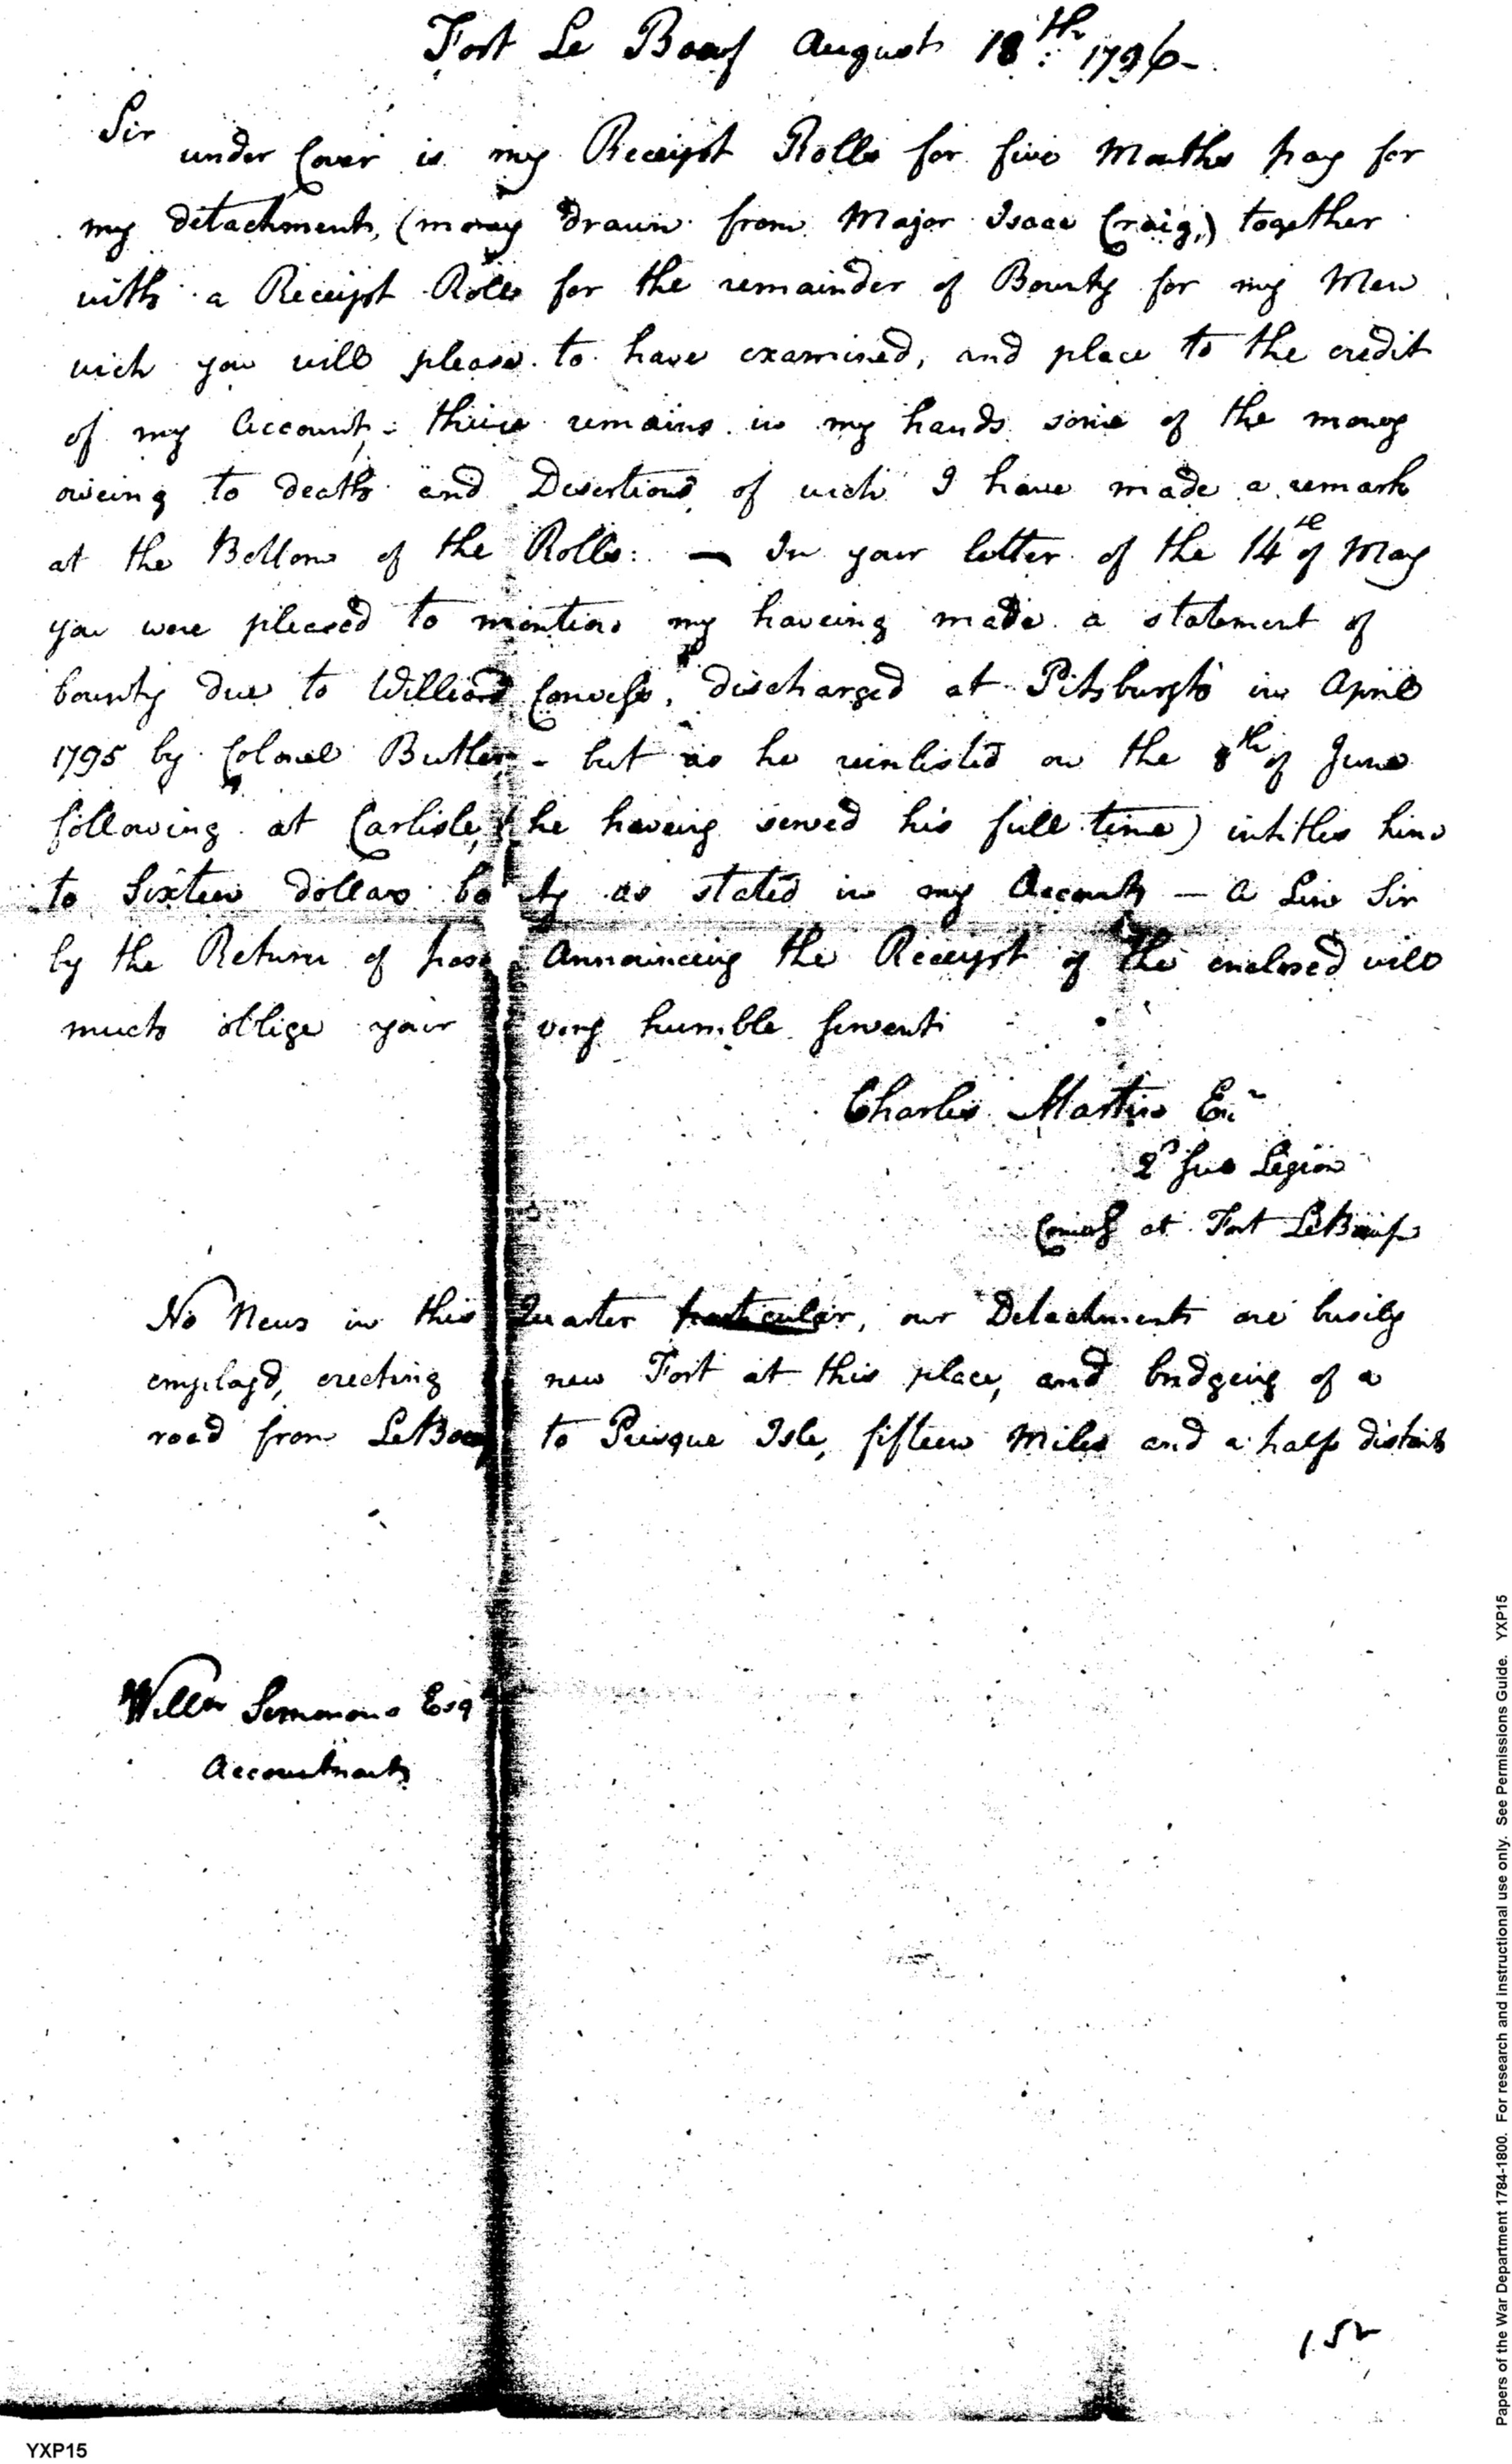 Fort Le Boeuf August 18th: 1796-
Sir
under Cover is my Receipt Rolls for five Months pay for
my detachment, (money drawn from Major Isaac Craig,) together
with a Receipt Rolls for the remainder of Bounty for my Men
wich you will please to have examined, and place to the credit
of my Account, - there remains in my hands some of the money
oweing to deaths and Desertions of wich I have made a remark
at the Bottom of the Rolls: — In your letter of the 14th of May
you were pleased to mention my haveing made a statement of
bounty due to Willard discharged at Pitsburgh in April
1795 by Colonel Butler - but as he reinlisted on the 8th of June
following at Carlisle, (he haveing served his full time) intitles him
to Sixteen dollars bo ty as stated in my Account — a Line Sir
by the Return of post Announceing the Receipt of the enclosed will
much oblige your very humble Servent
Charles Martin En
2d Sub Legion
at Fort LeBoeuf
No News in this Quarter particular, our Detachments are busily
employd, erecting new Fort at this place, and bridgeing of a
road from LeBoeuf to Presque Isle, fifteen Miles and a half distant
Willm Simmons Esq
Accountant
152
Papers of the War Department 1784-1800. For research and instructional use only. See Permissions Guide. YXP15
YXP15